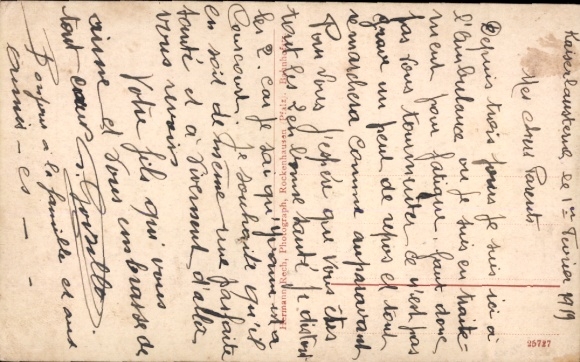 Kaiserslautern le 1er Fevrier 1919
Mes chers Parents
Depuis trois jours je suis ici à
l'ambulance ou je suis en traite-
ment pour fatigue, faut donc
pas vous tourmenter ce n'est pas
grave un peu de repos et tout
remarchera comme auparavant
Pour vous j'espère que vous êtes
tous les 2 en bonne santé je dis
les 2. car je sais qu' est à
je souhaite qu'il
en soit de même une parfaite
santé et a vivement d'aller
vous revoir
Votre fils qui vous
aime et vous embrasse de
tout cœur
Bonjour à la famille et aux
amis
Hermann Rech, Photograph, Rockenhausen Pfalz,
25727